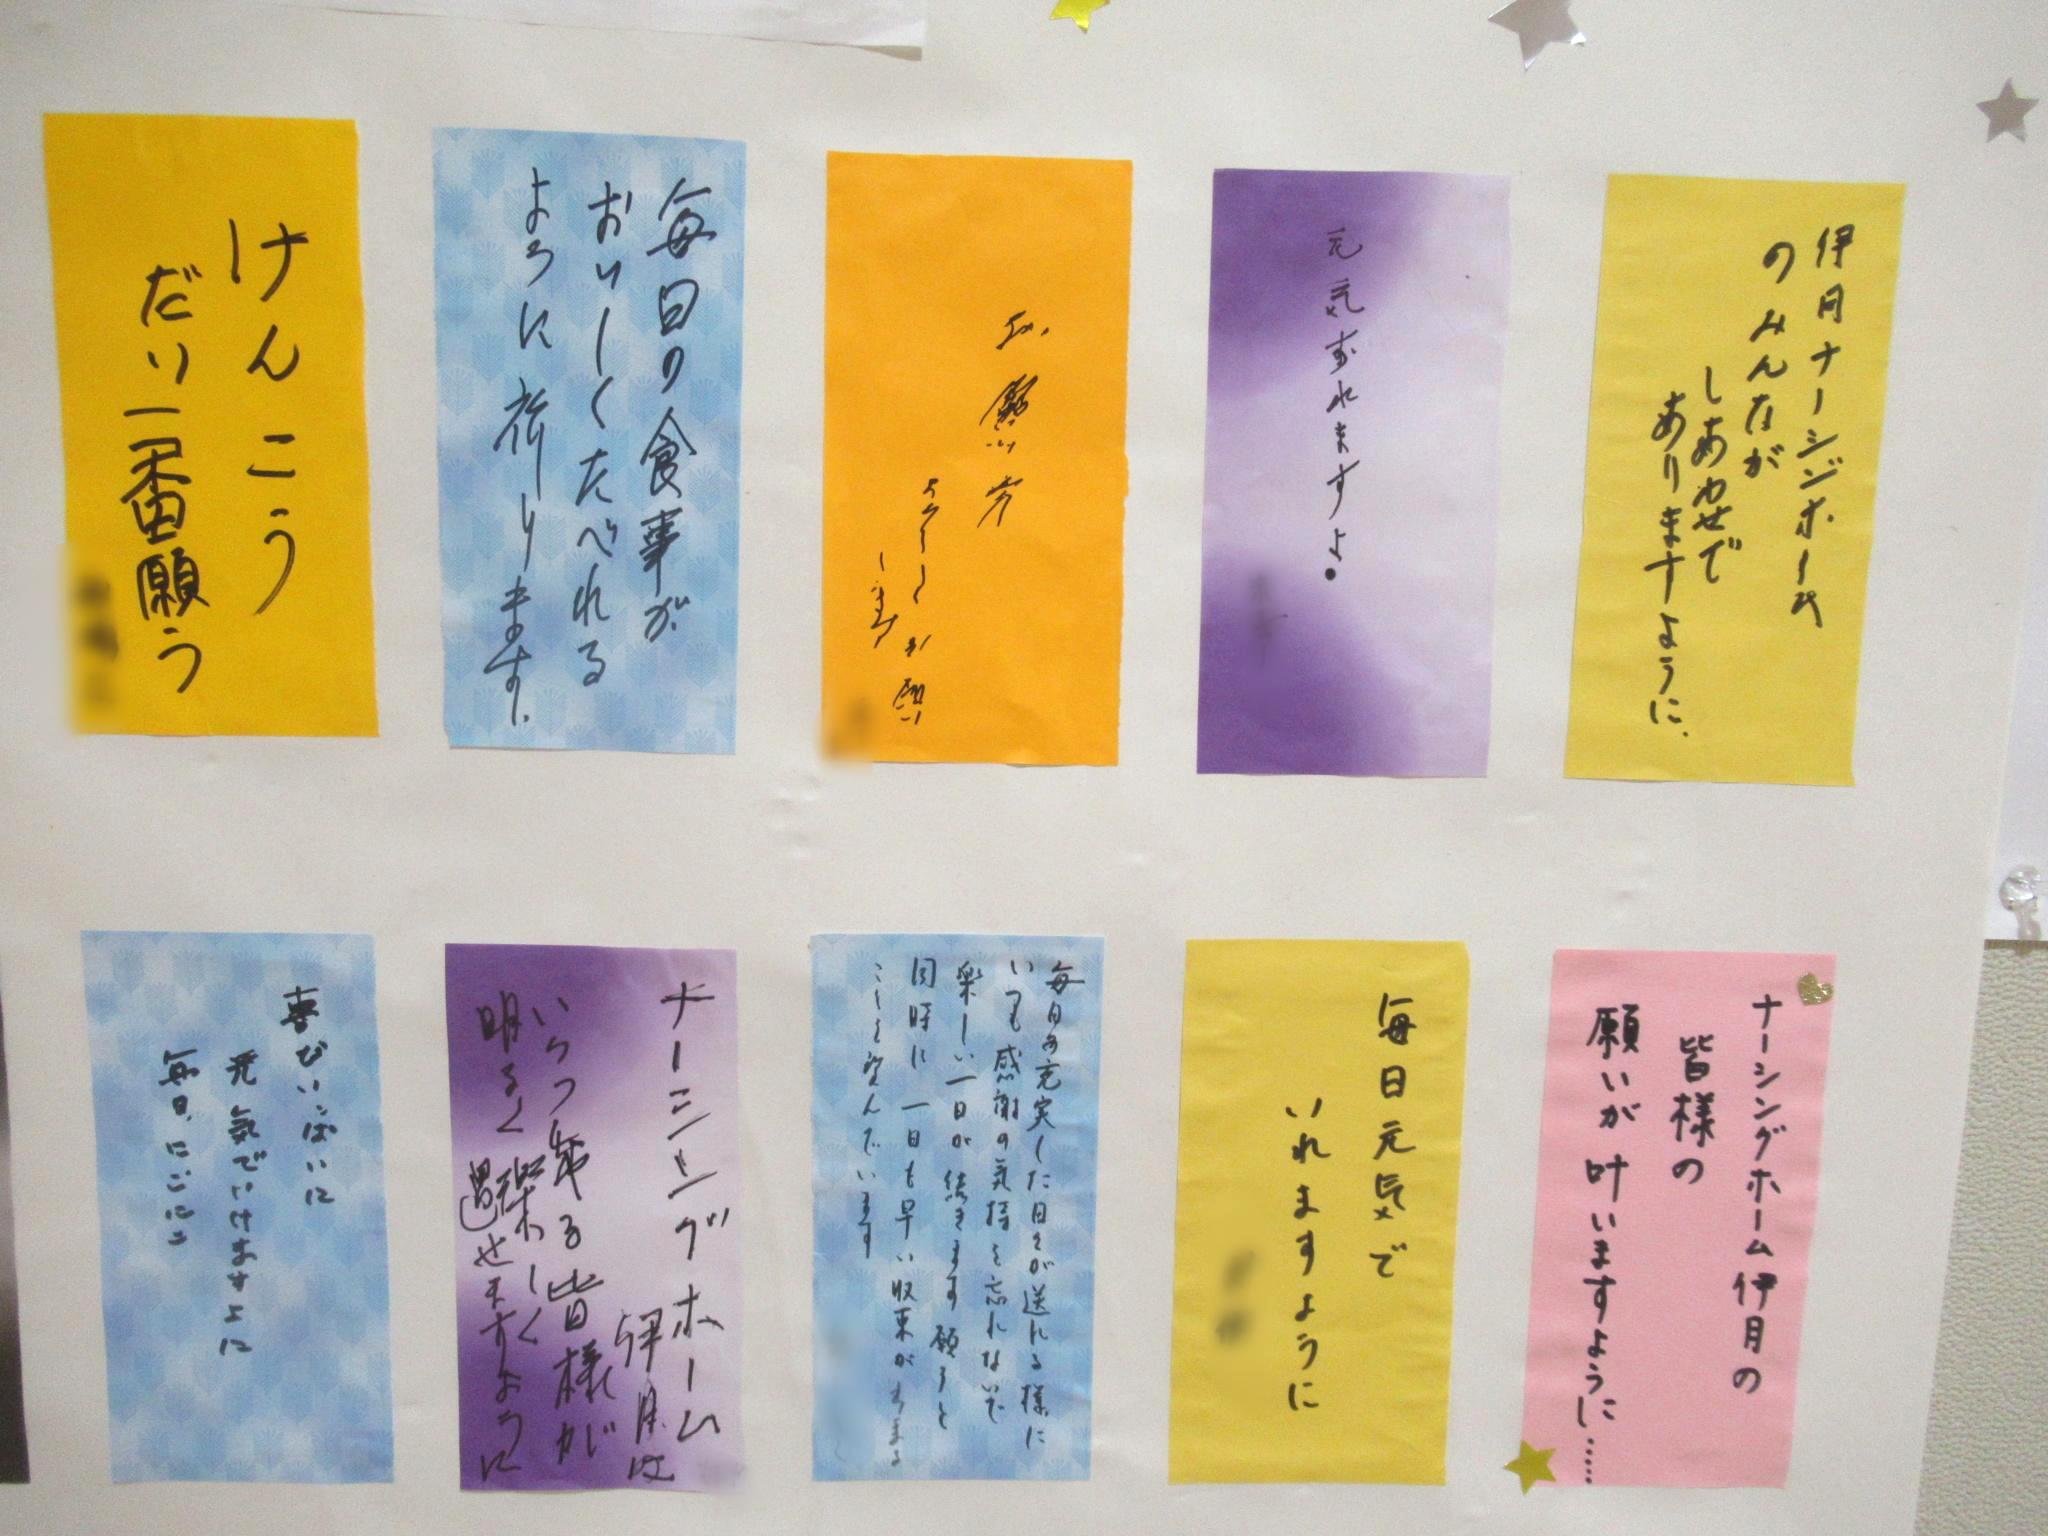 けんこう
だい一番願う
毎日の食事が
おいしくたべれる
ように祈ります.
よろしくお願い
します
元気すれますよ。
伊月ナーシジホーム
のみんなが
しあわせで
ありますように.
喜びいっぱいに
元気でいけますよに
毎日、にこにこ
ナーシングホーム
伊月に
いらつ者る皆様が
明るく楽しく
過せますように
毎日を充実した日々が送れる様に
いつも感謝の気持を忘れないで
楽しい一日が続きます願うと
同時に一日も早い収束が
ことを望んでいます
毎日元気で
いれますように
ナーシングホーム伊月の
皆様の
願いが叶いますように……